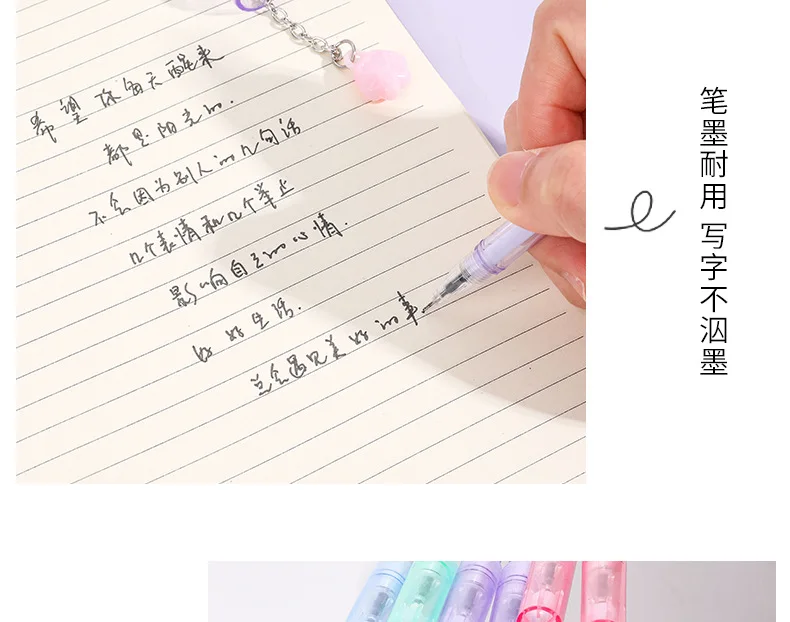 希望你每天醒来
都是阳光的.
不会因为别人的几句话
几个表情和几个举止
影响自己的心情.
好好生活.
总会遇见美好的事
笔墨耐用 写字不洇墨